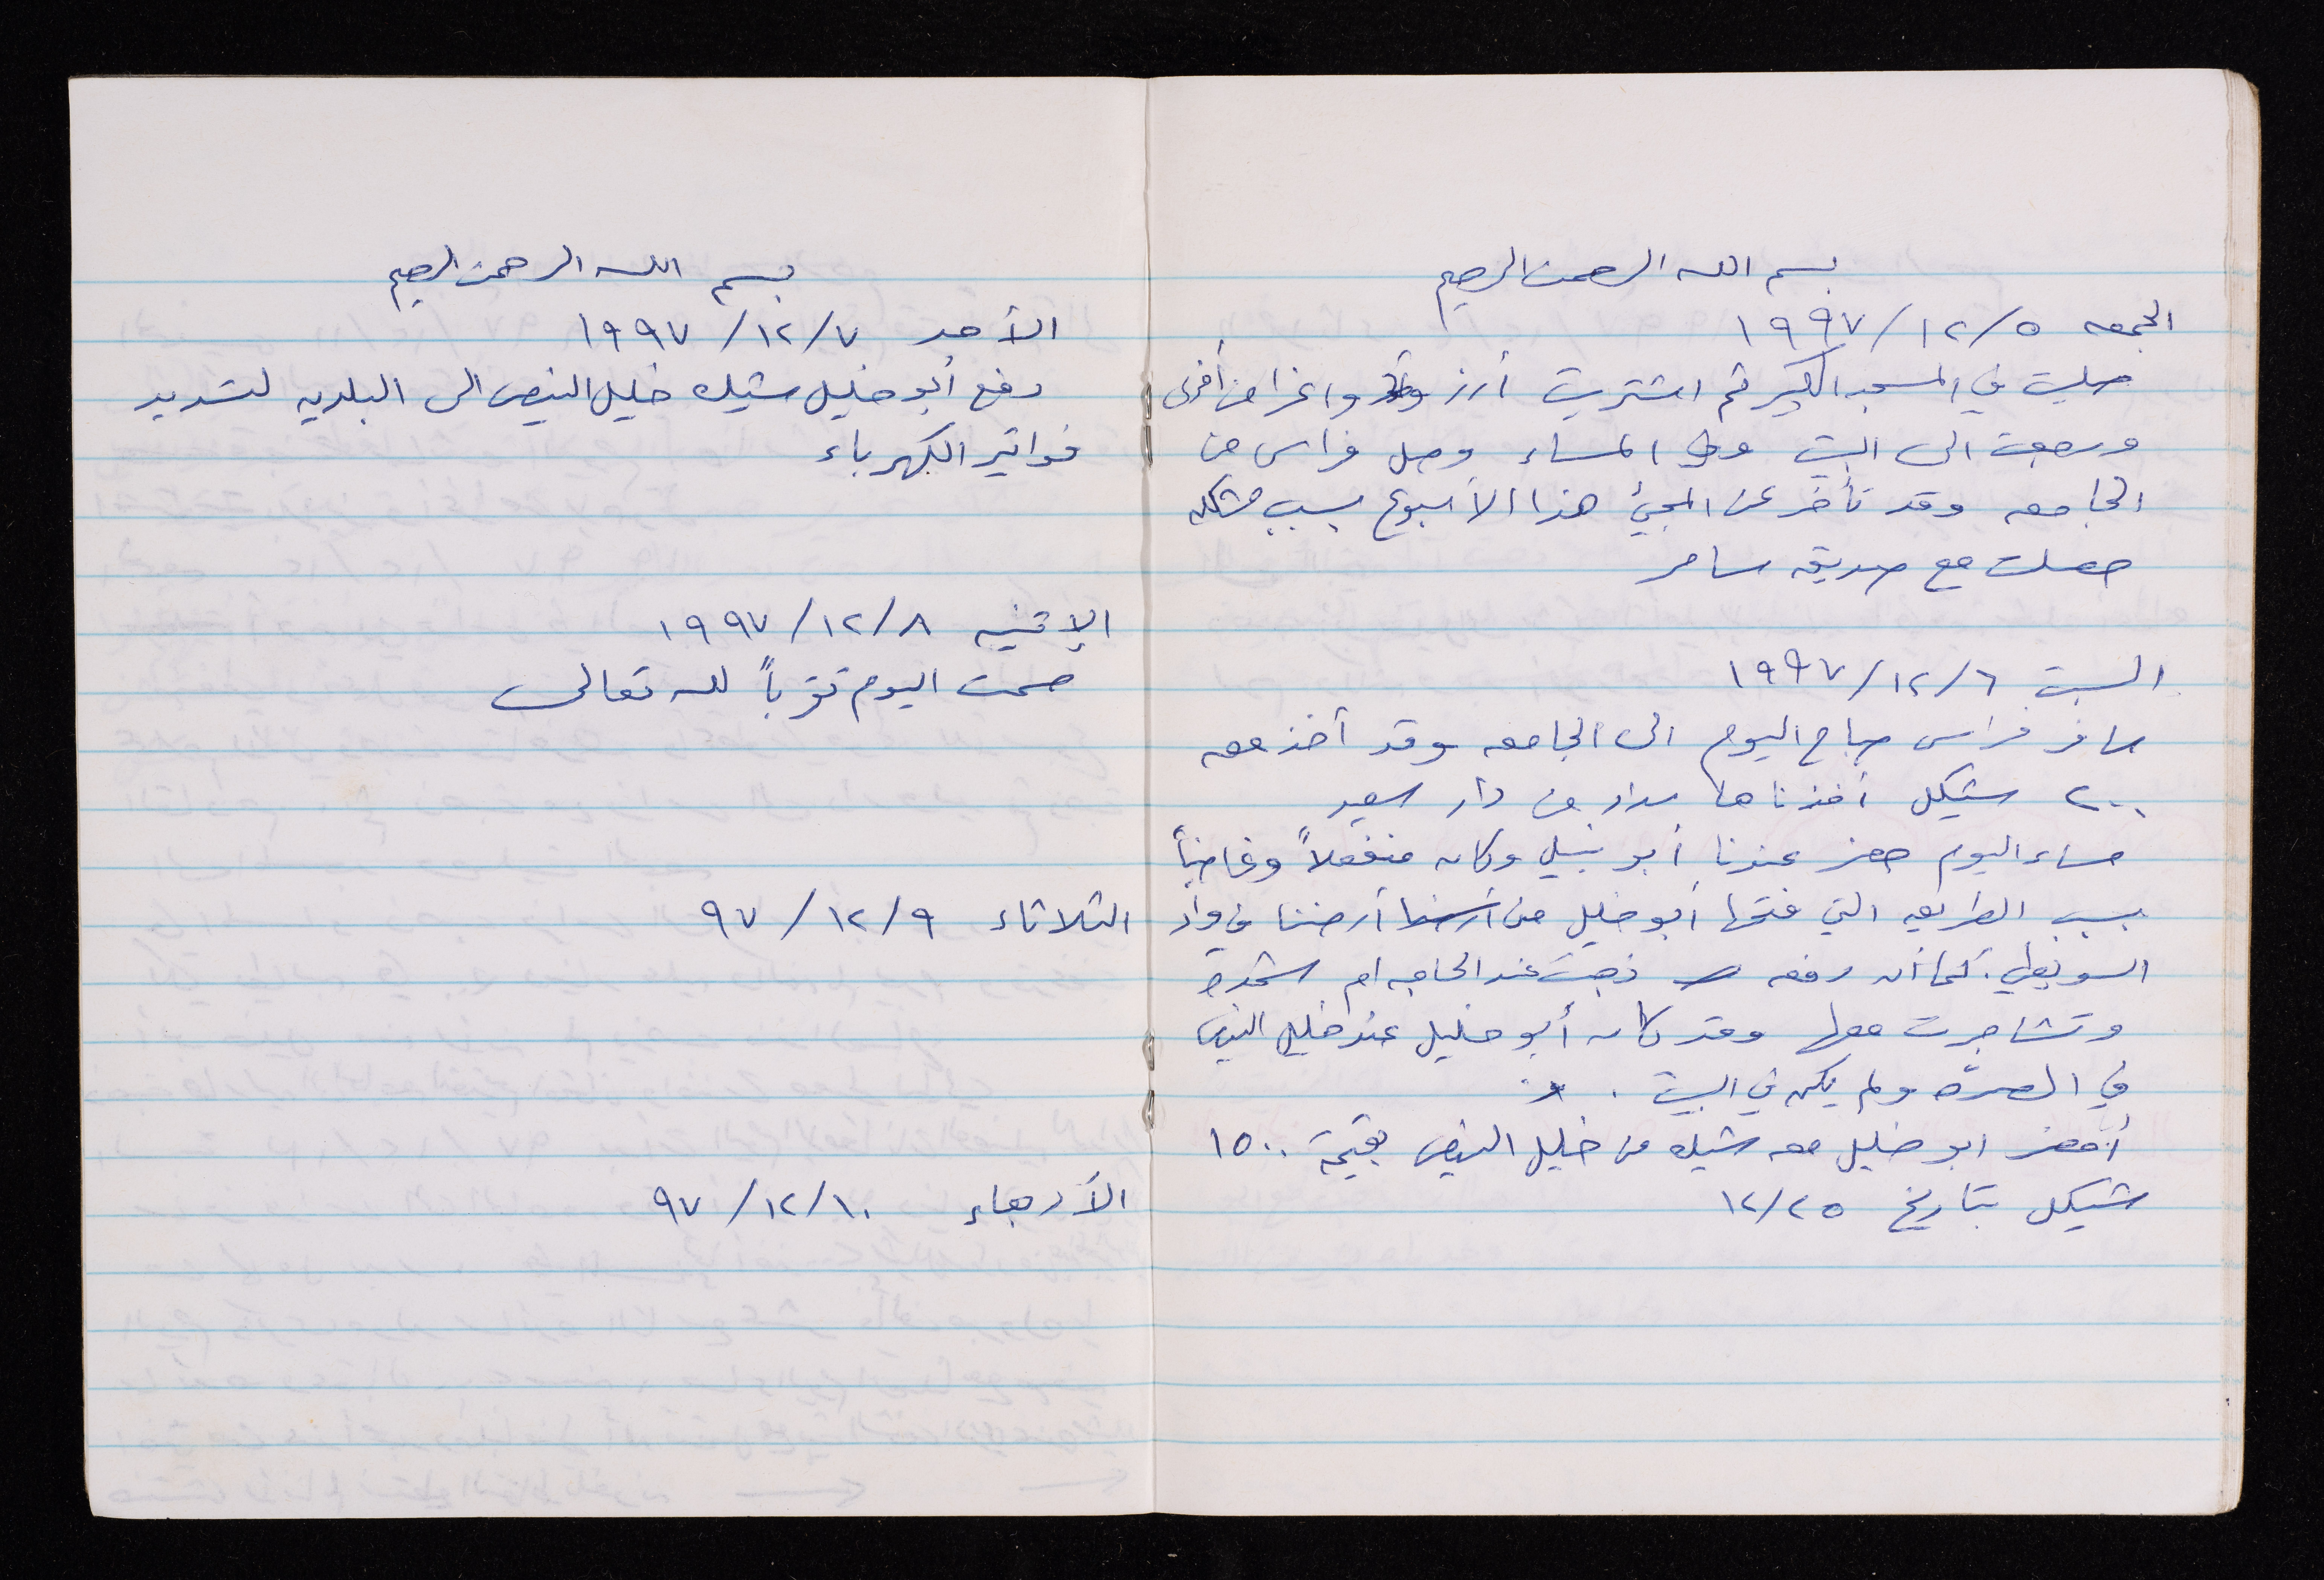 بسم الله الرحمن الرحيم
الجمعه ٥/١٢/١٩٩٧
صليت في المسجد الكبير ثم اشتريت أرز واغراض أخرى
ورجعت الى البيت وفي المساء وصل فراس من
الجامعه وقد تأخر عن المجيئ هذا الأسبوع بسبب مشكله
حصلت مع صديقه سامر
السبت ٦/١٢/١٩٩٧
سافر فراس صباح اليوم الى الجامعه وقد أخذ معه
٢٠٠ شيكل أخذناها من دار سعيد
مساء اليوم حضر عندنا أبو نبيل وكان منفعلاً وغاضباً
بسبب الطريق التي فتحها أبو خليل من أرضنا في واد
كما أن رفعه ذهبت عند الحاجه ام شحده
وتشاجرت معها وقد كان أبو خليل عند خليل النيص
في الصرّه ولم يكن في البيت .
أحضر ابو خليل معه شيك من خليل النيص بقيمة ١٥٠٠
شيكل بتاريخ ٢٥/١٢
بسم الله الرحمن الرحيم
الأحد ٧/١٢/١٩٩٧
دفع أبو خليل شيك خليل النيص الى البلديه لتسديد
فواتير الكهرباء
الإثنين ٨/١٢/١٩٩٧
صمت اليوم تقرباً لله تعالى
الثلاثاء ٩/١٢/٩٧
الأربعاء ١٠/١٢/٩٧